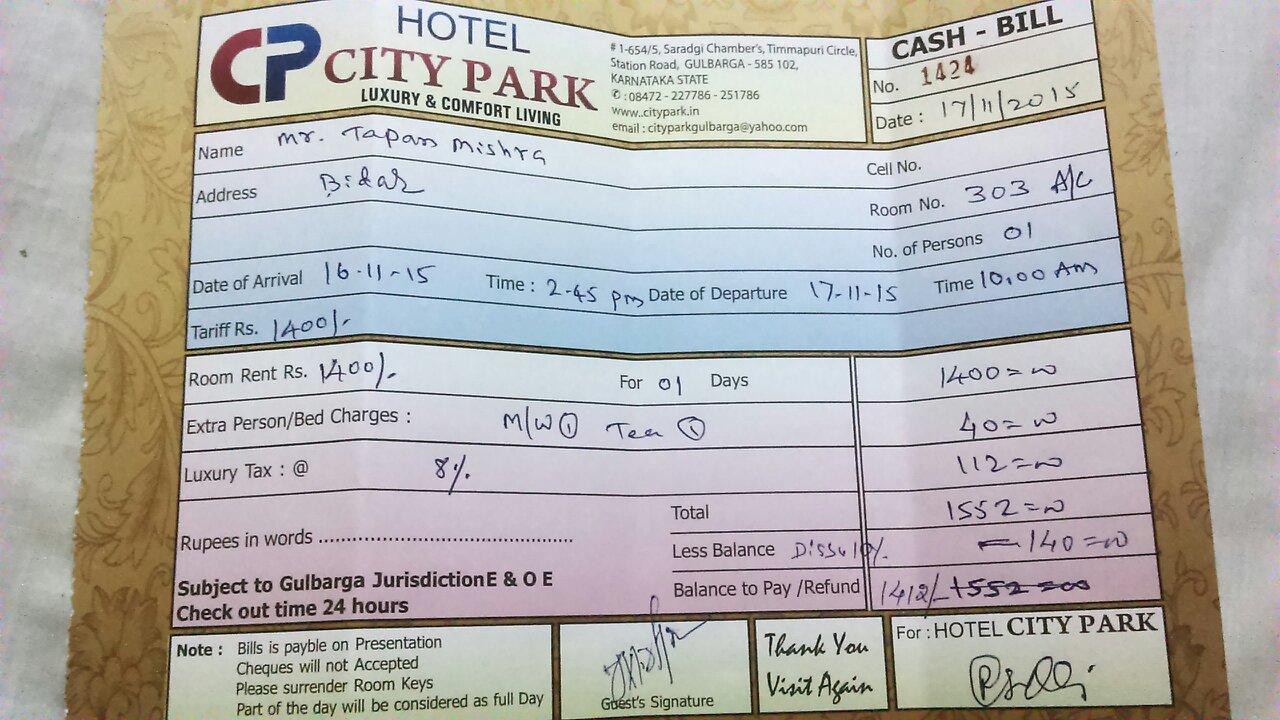 CP HOTEL
CITY PARK
LUXURY & COMFORT LIVING
# 1-654/5, Saradgi Chamber's, Timmapuri Circle,
Station Road, GULBARGA - 585 102,
KARNATAKA STATE
✆ : 08472 - 227786 - 251786
www..citypark.in
email : cityparkgulbarga@yahoo.com
CASH - BILL
No. 1424
Date : 17/11/2015
Name Mr. Tapan Mishra
Cell No.
Address Bidar
Room No. 303 A/C
No. of Persons 01
Date of Arrival 16-11-15 Time : 2-45 pm Date of Departure 17-11-15 Time 10.00 Am
Tariff Rs. 1400/-
Room Rent Rs. 1400/- For 01 Days 1400=00
Extra Person/Bed Charges : M/W ① Tea ① 40=00
Luxury Tax : @ 8% 112=00
Total 1552=00
Rupees in words ................................................
Less Balance 10%. - 140=00
Subject to Gulbarga Jurisdiction E & O E
Balance to Pay /Refund 1412/- 1552=00
Check out time 24 hours
Note : Bills is payble on Presentation
Cheques will not Accepted
Please surrender Room Keys
Part of the day will be considered as full Day
Guest's Signature
Thank You
Visit Again
For : HOTEL CITY PARK